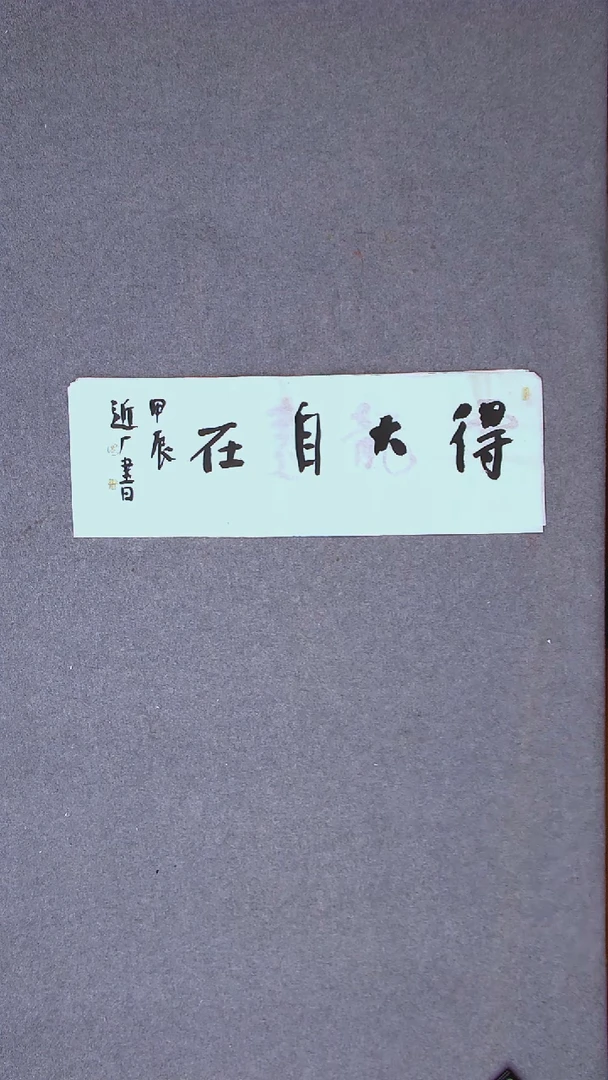 得大自在
甲辰
近广書